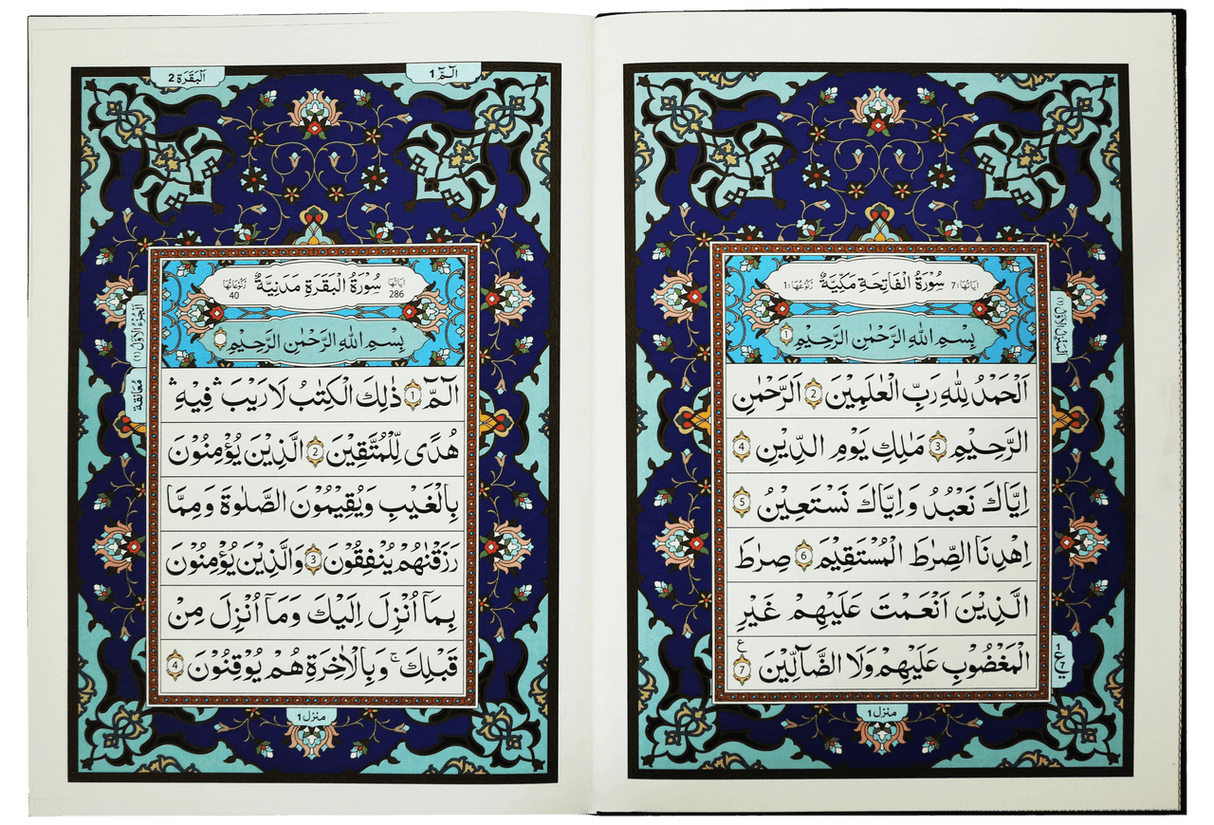 سُوْرَةُ الْفَاتِحَةِ مَكِّيَّةٌ
اٰيَاتُهَا: 7
رُكُوْعُهَا: 1
بِسْمِ اللّٰهِ الرَّحْمٰنِ الرَّحِيْمِ 1
اَلْحَمْدُ لِلّٰهِ رَبِّ الْعٰلَمِيْنَ 2 الرَّحْمٰنِ
الرَّحِيْمِ 3 مٰلِكِ يَوْمِ الدِّيْنِ 4
اِيَّاكَ نَعْبُدُ وَاِيَّاكَ نَسْتَعِيْنُ 5
اِهْدِنَا الصِّرَاطَ الْمُسْتَقِيْمَ 6 صِرَاطَ
الَّذِيْنَ اَنْعَمْتَ عَلَيْهِمْ غَيْرِ
الْمَغْضُوْبِ عَلَيْهِمْ وَلَا الضَّآلِّيْنَ 7
1
ع
7
منزل 1
الٓمّٓ 1
اَلْبَقَرَة 2
سُوْرَةُ الْبَقَرَةِ مَدَنِيَّةٌ
اٰيَاتُهَا 286
رُكُوْعَاتُهَا 40
بِسْمِ اللّٰهِ الرَّحْمٰنِ الرَّحِيْمِ
الٓمّٓ 1 ذٰلِكَ الْكِتٰبُ لَا رَيْبَ ۛ فِيْهِ ۛ
هُدًى لِّلْمُتَّقِيْنَ 2 الَّذِيْنَ يُؤْمِنُوْنَ
بِالْغَيْبِ وَيُقِيْمُوْنَ الصَّلٰوةَ وَمِمَّا
رَزَقْنٰهُمْ يُنْفِقُوْنَ 3 وَالَّذِيْنَ يُؤْمِنُوْنَ
بِمَآ اُنْزِلَ اِلَيْكَ وَمَآ اُنْزِلَ مِنْ
قَبْلِكَ ۚ وَبِالْاٰخِرَةِ هُمْ يُوْقِنُوْنَ 4
اَلْجُزْءُ الْاَوَّلُ (1)
معانقة
منزل 1